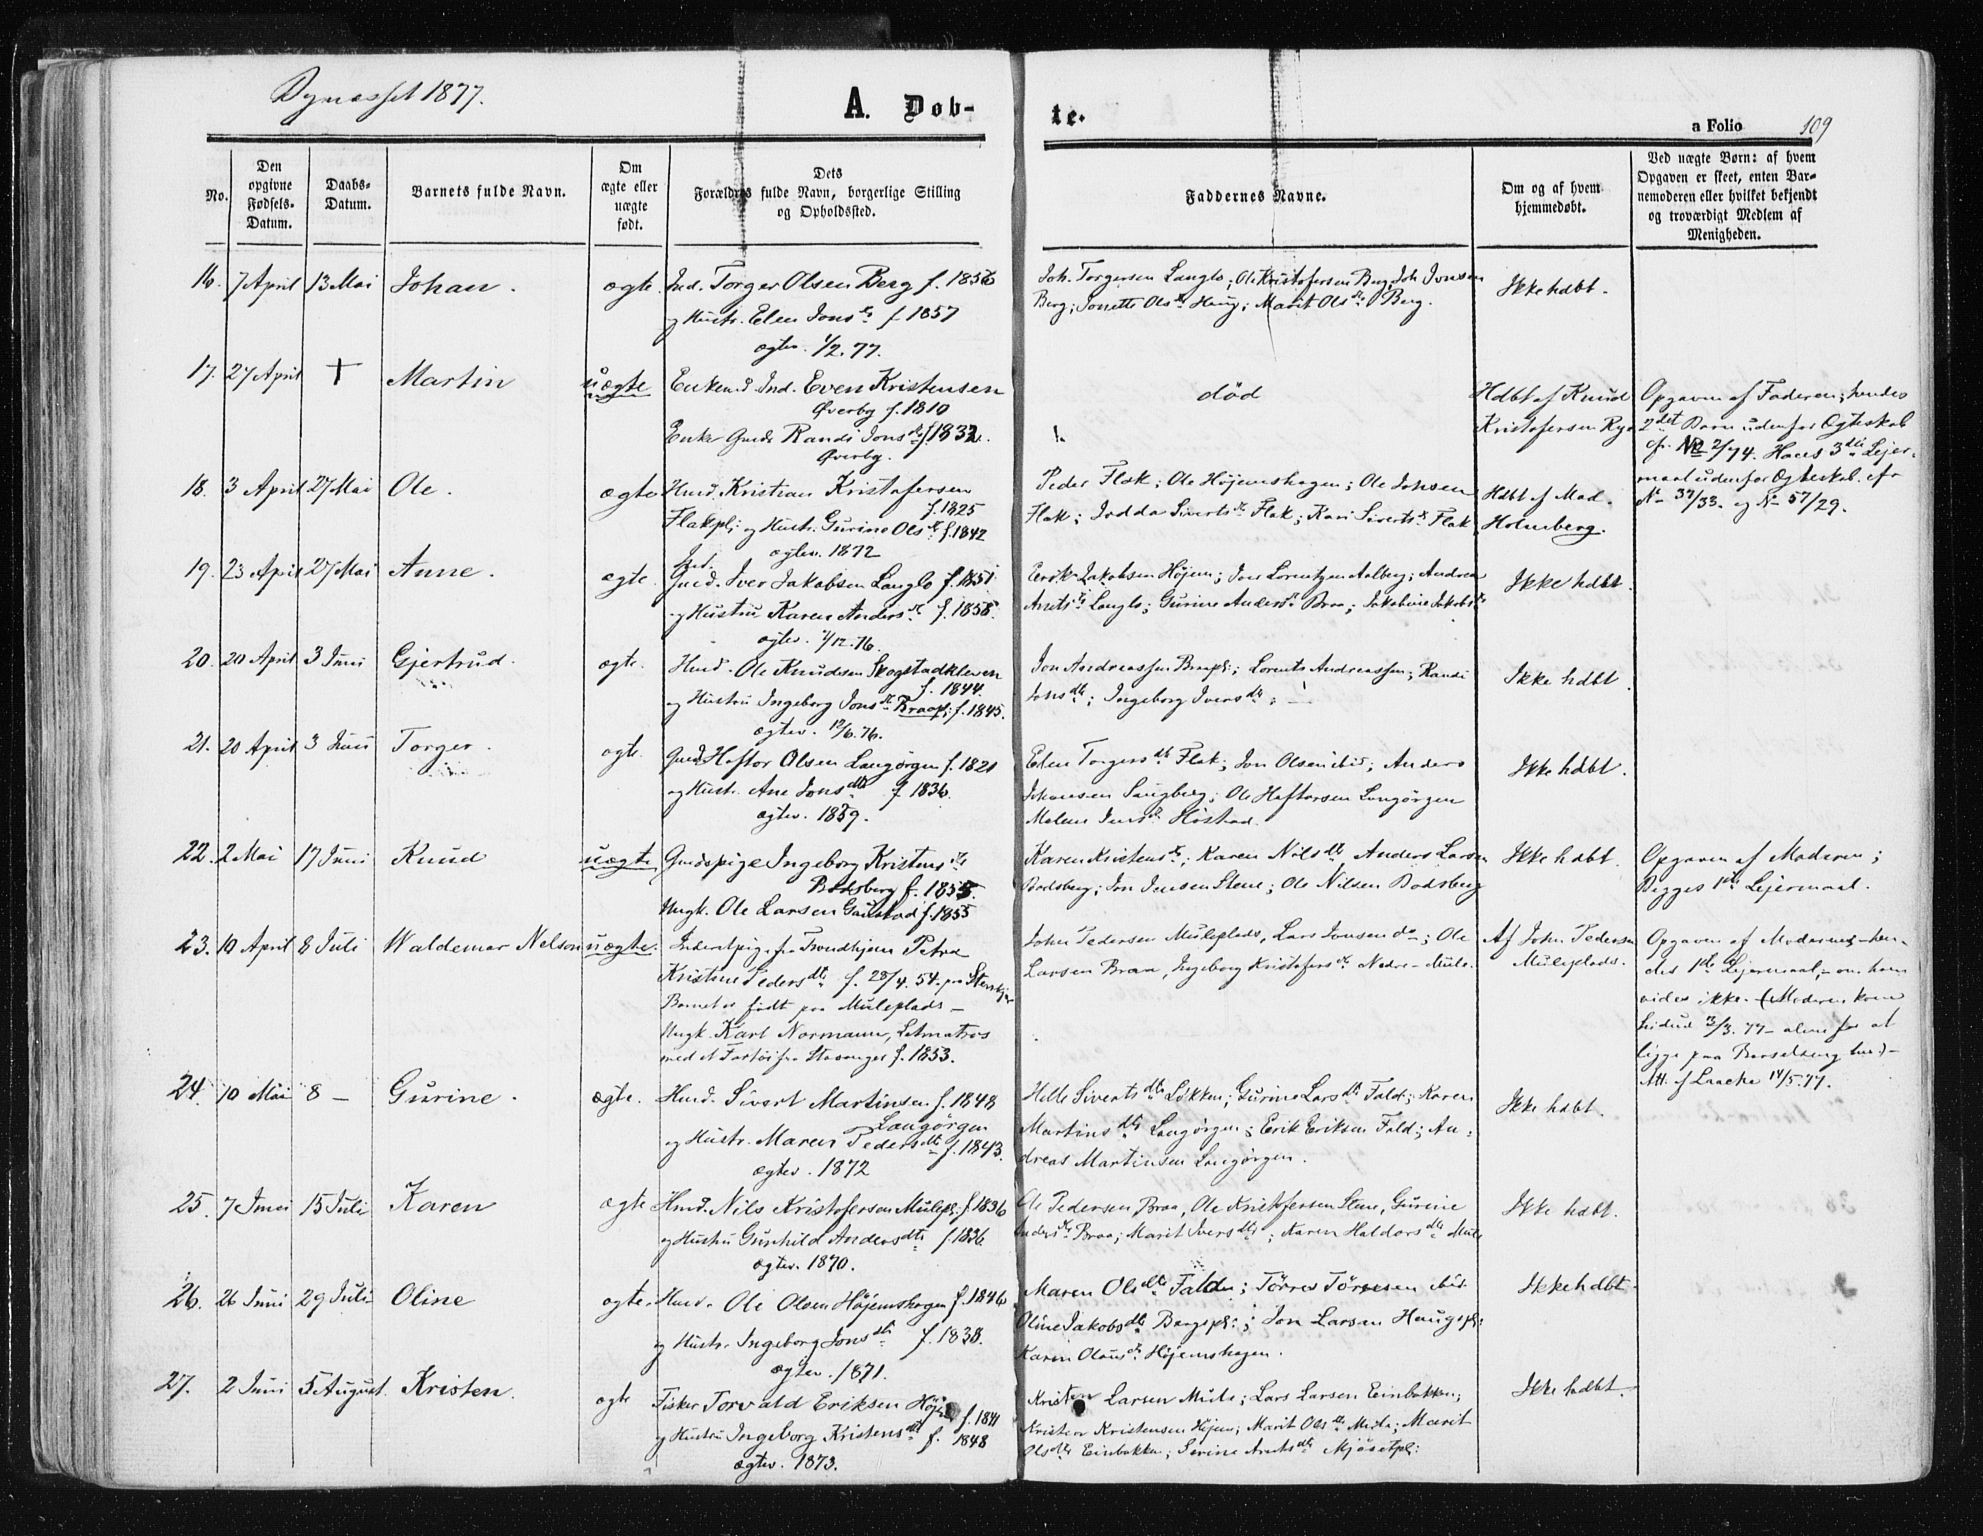 Bynæsset 1877.
A. Døb-
te.
a Folio 109
No.
Den opgivne Fødsels-Datum.
Daabs-Datum.
Barnets fulde Navn.
Om ægte eller uægte født.
Dets Forældres fulde Navn, borgerlige Stilling og Opholdssted.
Faddernes Navne.
Om og af hvem hjemmedøbt.
Ved uægte Børn: af hvem Opgaven er skeet, enten Barnemoderen eller hvilket bekjendt og troværdigt Medlem af Menigheden.
16. 7 April 13 Mai Johan. ægte. Ind. Torger Olsen Berg f. 1856
og Hustr. Elen Jonsdr f. 1857
ægtev. 1/2.77.
Joh. Torgersen Langlo; Ole Kristofersen Berg; Joh. Jonsen
Berg; Jonette Olsdr Haug; Marit Olsdr Berg.
Ikke hdbt.
17. 27 April + Martin uægte Enkem. Ind. Even Kristensen
Øverby f. 1810
Enke Gmds Randi Jonsdr f. 1832.
Øverby.
død
Hdbt af Knud
Kristofersen Rye
Opgaven af Faderen; hendes
2det Barn udenfor Ægteskab
cfr. No 2/74. Hans 3die Lejer-
maal udenfor Ægteskab. cfr
No 37/33. og No 57/29.
18. 3 April 27 Mai Ole. ægte Hmd. Kristian Kristofersen
f. 1825
Flakpl; og Hustr. Gurine Olsdr f. 1842
ægtev. 1872
Peder Flak; Ole Højemshagen; Ole Johsen
Flak; Jodda Sivertsdr Flak; Kari Sivertsdr Flak
Hdbt af Mad.
Holmberg.
19. 23 April 27 Mai Anne. ægte. Ind.
Gmd. Iver Jakobsen Langlo f. 1851
og Hustru Karen Andersdr f. 1858.
ægtev. 1/12.76.
Eerik Jakobsen Højem; Jon Lorentzen Aalberg; Andrea
Arntsdr Langlo; Gurine Andersdr Braa; Jakobine Jakobsdr
Ikke hdbt
20. 20 April 3 Juni Gjertrud. ægte. Hmd. Ole Knudsen Skogstadkleven
f. 1844.
og Hustru Ingeborg Jonsdr Braapl; f. 1845.
ægtev. 12/6.76.
Jon Andreassen Braapl; Lorents Andreassen; Randi
Jonsdtr; Ingeborg Iversdtr; —
Ikke hdbt.
21. 20 April 3 Juni Torger. ægte. Gmd. Haftor Olsen Langørgen f. 1821
og Hustr. Ane Jonsdtr f. 1836.
ægtev. 1859.
Elen Torgersdtr Flak; Jon Olsen ibid; Anders
Johansen Langberg; Ole Haftorsen Langørgen
Malene Jensdr Høstad.
Ikke hdbt.
22. 2 Mai 17 Juni Knud uægte Gmdspige Ingeborg Kristensdtr
Bodsberg f. 1855.
Ungk. Ole Larsen Gaustad f. 1855
Karen Kristensdr; Karen Nilsdtr Anders Larsen
Bodsberg; Jon Jensen Stene; Ole Nilsen Bodsberg
Ikke hdbt.
Opgaven af Moderen;
Begges 1ste Lejermaal.
23. 10 April 8 Juli Waldemar Nelson uægte. Inderstpige fra Trondhjem Petra
Kristine Pedersdtr f. 28/4.54. paa Stenkjær
Barnet er født paa Muleplads —
Ungk. Karl Normann, Letmatros
med et Fartøi fra Stavanger f. 1853.
John Pedersen Muleplads, Lars Jonsen do; Ole
Larsen Braa, Ingeborg Kristofersdr Nedre-Mule.
Af John Pedersen
Muleplads.
Opgaven af Moderen; hen-
des 1ste Lejermaal, om hans
vides ikke. (Moderen kom
hidud 3/3.77 — alene for at
ligge paa Barselseng her) —
Att. f. Laache 14/5.77.
24. 10 Mai 8 — Gurine. ægte. Hmd. Sivert Martinsen f. 1848
Langørgen
og Hustr. Maren Pedersdtr f. 1843.
ægtev. 1872
Helle Sivertsdtr Løkken; Gurine Larsdtr Fald; Karen
Martinsdtr Langørgen; Eerik Eeriksen Fald; An-
dreas Martinsen Langørgen.
Ikke hdbt.
25. 7 Juni 15 Juli Karen ægte Hmd. Nils Kristofersen Mulepl; f. 1836
og Hustru Gunhild Andersdtr f. 1836.
ægtev. 1870.
Ole Pedersen Braa, Ole Kristofersen Stene, Gurine
Andersdr Braa; Marit Iversdtr; Karen Haldorsdtr Mule
Ikke hdbt.
26. 26 Juni 29 Juli Oline ægte. Hmd. Ole Olsen Højemshagen f. 1846
og Hustr. Ingeborg Jonsdtr f. 1838.
ægtev. 1871.
Maren Olsdtr Falde; Tørres Tørresen ibid.
Oline Jakobsdtr Bergspl; Jon Larsen Haugspl;
Karen Olausdr Højemshagen.
Ikke hdbt.
27. 2 Juni 5 August. Kristen. ægte Fisker Torvald Eriksen Høj f. 1841
og Hustru Ingeborg Kristensdtr f. 1848
ægtev. 1873.
Kristen Larsen Mule; Lars Larsen Eenbakken;
Kristen Kristensen Højem; Marit Olsdtr Mule; Marit
Olsdtr Einbakken; Serine Arntsdtr Mjøsetpl;
Ikke hdbt.